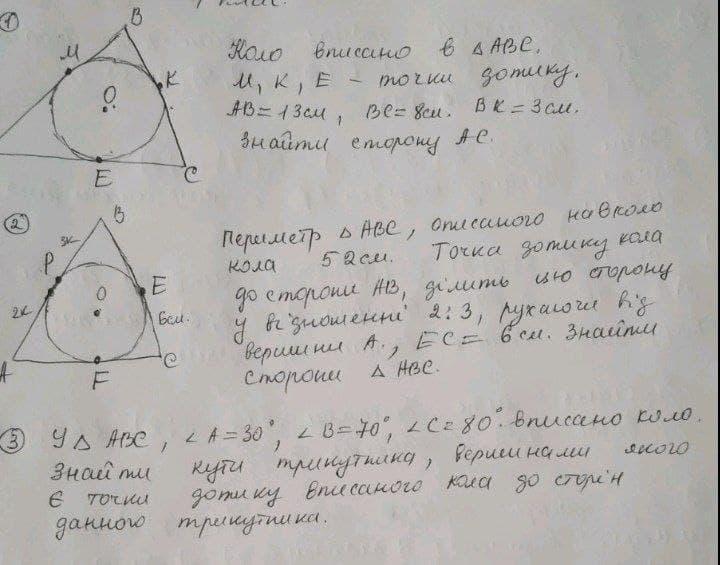 клас.
1
В
М
К
О
Е
С
Коло вписано в △ АВС.
М, К, Е – точки дотику.
АВ = 13см, ВС = 8см. ВК = 3см.
Знайти сторону АС.
2
В
3к
Р
О
Е
2к
6см.
А
F
С
Периметр △ АВС, описаного навколо
кола 52см. Точка дотику кола
до сторони АВ, ділить цю сторону
у відношенні 2:3, рухаючи від
вершини А., ЕС = 6 см. Знайти
сторони △ АВС.
3 У △ АВС, ∠ А = 30°, ∠ В = 70°, ∠ С = 80°. вписано коло.
Знайти кути трикутника, вершинами якого
є точки дотику вписаного кола до сторін
данного трикутника.